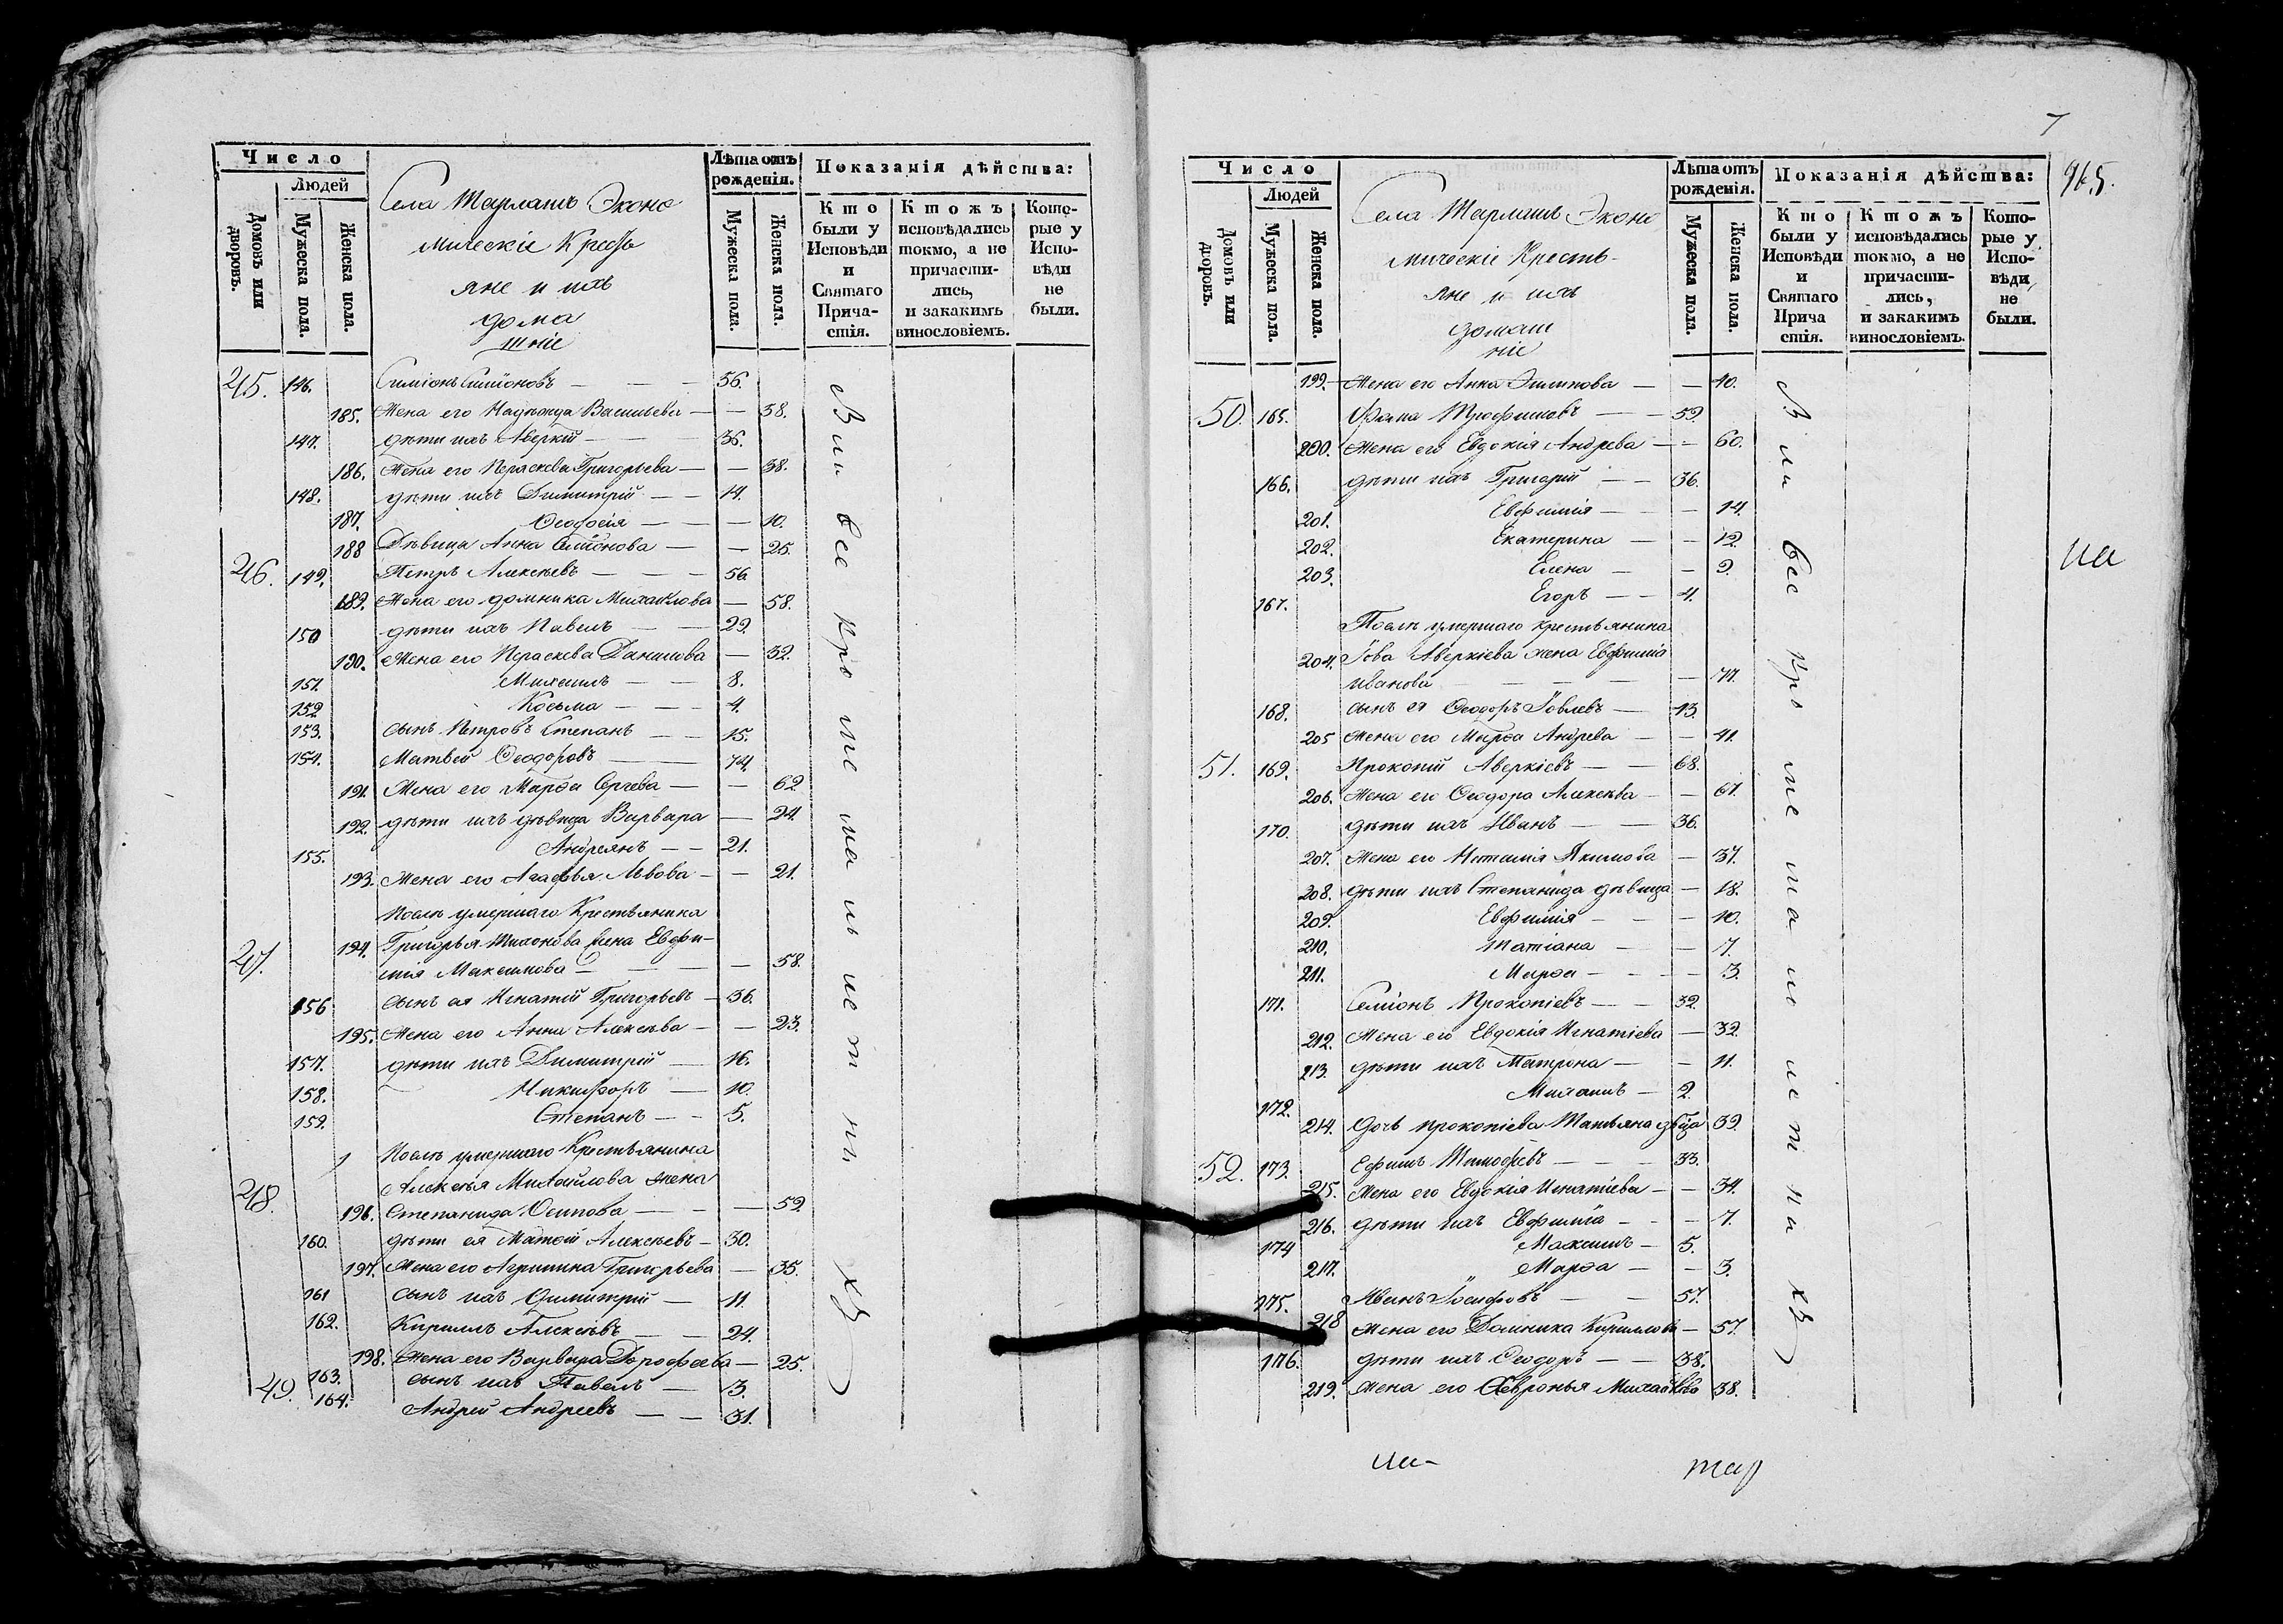 Число
Людей
Домовъ или дворовъ.
Мужеска пола.
Женска пола.
Села Тарлашъ Эконо
мическіе Кресть
яне и ихъ
дома
шніе
Лѣта отъ рожденія.
Мужеска пола.
Женска пола.
Показанія дѣйства:
Кто были у Исповѣди и Святаго Прича-стія.
Ктожъ исповѣдались токмо, а не причасти-лись, и закакимъ винословіемъ.
Кото-рые у Испо-вѣди не были.
45. 146. Симіонъ Симіоновъ — — — 56.
185. Жена его Надѣжда Васильева — — 58.
147. дѣти ихъ Аверкій — — — 36.
186. Жена его Пераскева Григорьева — — 38.
148. дѣти ихъ Димитрій — — 14.
187. Ѳеодосія — — — 10.
188 Дѣвица Анна Семіонова — — 25.
46. 149. Петръ Алексѣевъ — — — 56
189. Жена его домника Михайлова — 58.
150 дѣти ихъ Павелъ — — 29.
190. Жена его Пераскева Данилова — 32.
151. Михаилъ — — 8.
152 Косьма — — 4.
153. сынъ Петровъ Степанъ — — 15.
154. Матвей Ѳеодоровъ — — 74.
191. Жена его Марѳа Сергеева — — 62
192. дѣти ихъ дѣвица Варвара — 24.
155. Андреянъ — — 21.
193. Жена его Агафья Львова — — 21.
Послѣ умершаго Крестьянина
47. 194. Григорья Тихонова жена Евфи-
мія Максимова — — — — 58.
156 сынъ ея Игнатій Григорьевъ — 36.
195. Жена его Анна Алексѣева — — 23.
157. дѣти ихъ Димитрій — 16.
158. Никифоръ — 10.
159. Степанъ — — 5.
Послѣ умершаго Крестьянина
48. Алексѣя Михайлова жена
196. Степанида Осипова — — — 59.
160. дѣти ея Матѳій Алексѣевъ — 30.
197. Жена его Агрипина Григорьева — 35.
161 сынъ ихъ Димитрій — 11.
162. Кириллъ Алексѣевъ — — 24.
198. Жена его Варвара Дорофеева — 25.
163. сынъ ихъ Павелъ — 3.
49. 164. Андрей Андреевъ — — 31.
7
965.
Число
Людей
Домовъ или дворовъ.
Мужеска пола.
Женска пола.
Села Тарлашъ Эконо
мическіе Кресть-
яне и ихъ
домаш
ніе
Лѣта отъ рожденія.
Мужеска пола.
Женска пола.
Показанія дѣйства:
Кто были у Исповѣди и Святаго Прича стія.
Ктожъ исповѣдались токмо, а не причасти-лись, и закакимъ винословіемъ.
Кото-рые у Испо-вѣди, не были.
199. Жена его Анна Филипова — — 40.
50. 165. Фома Трофимовъ — — 59.
200. Жена его Евдокія Андрева — — 60.
166. дѣти ихъ Григорій — — 36.
201. Евфимія — — — 14
202. Екатерина — — 12.
203. Елена — — 9.
167. Егоръ — — 4.
Послѣ умершаго крестьянина
204. Іова Аверкіева жена Евфимія
Иванова — — — — — 77.
168. сынъ ея Ѳеодоръ Іовлевъ — 43.
205 Жена его Марѳа Андрева — — 41.
51. 169. Прокопій Аверкіевъ — — 68.
206. Жена его Ѳеодора Алексѣва — — 67.
170. дѣти ихъ Иванъ — — 36.
207. Жена его Наталія Якимова — 37.
208. дѣти ихъ Степанида дѣвица — 18.
209. Евфимія — — — 10.
210. Татіана — — 7.
211. Марѳа — — — 3.
171. Семіонъ Прокопіевъ — — 32.
212. Жена его Евдокія Игнатіева — 32.
213. дѣти ихъ Матрона — — 11.
172. Михаилъ — 2.
214. дочь прокопіева Татьяна двца 39.
52. 173. Ефимъ Тимофѣевъ — — — 33.
215. Жена его Евдокія Игнатіева — — 34.
216. дѣти ихъ Евфимія — — — 7.
174 Максимъ — 5.
217. Марѳа — — 3.
175. Иванъ Іосифовъ — — 57.
218 Жена его Домника Кирилова — 57.
176. дѣти ихъ Ѳеодоръ — — 38.
219. Жена его Ѳевронья Михайлова 38.